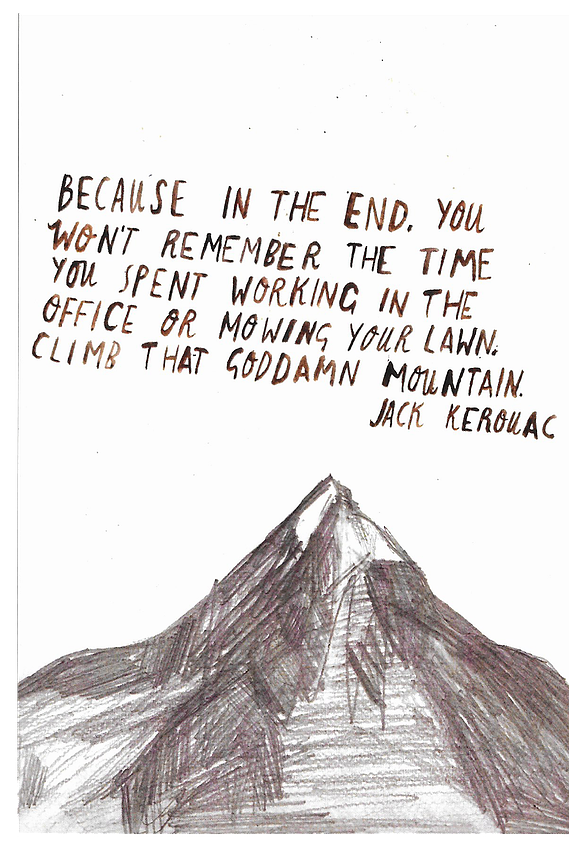 BECAUSE IN THE END. YOU
WON'T REMEMBER THE TIME
YOU SPENT WORKING IN THE
OFFICE OR MOWING YOUR LAWN.
CLIMB THAT GODDAMN MOUNTAIN.
JACK KEROUAC